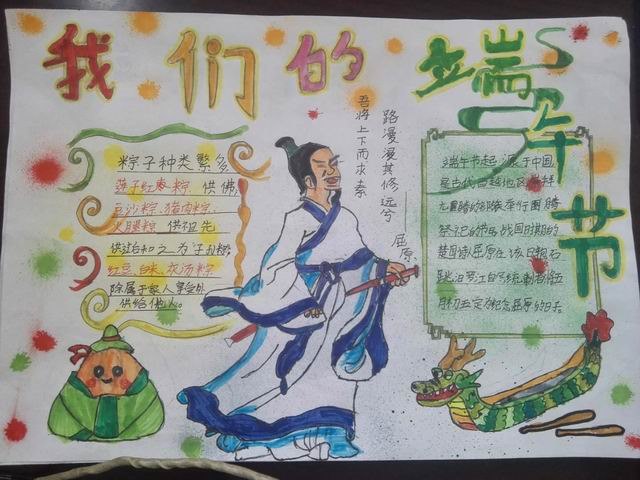 我们的端午节
粽子种类繁多
莲子红枣粽 供佛
豆沙粽、猪肉粽、
火腿粽 供祖先
红豆、白米、
除属于家人享受外
供给他人。
路漫漫其修远兮
吾将上下而求索
屈原
端午节起源于中国,
是古代百越地区崇拜
举行图腾
祭祀的节日,战国时期的
楚国诗人屈原在该日抱石
跳汨罗江自尽统制者将五
月初五定为纪念屈原的日子